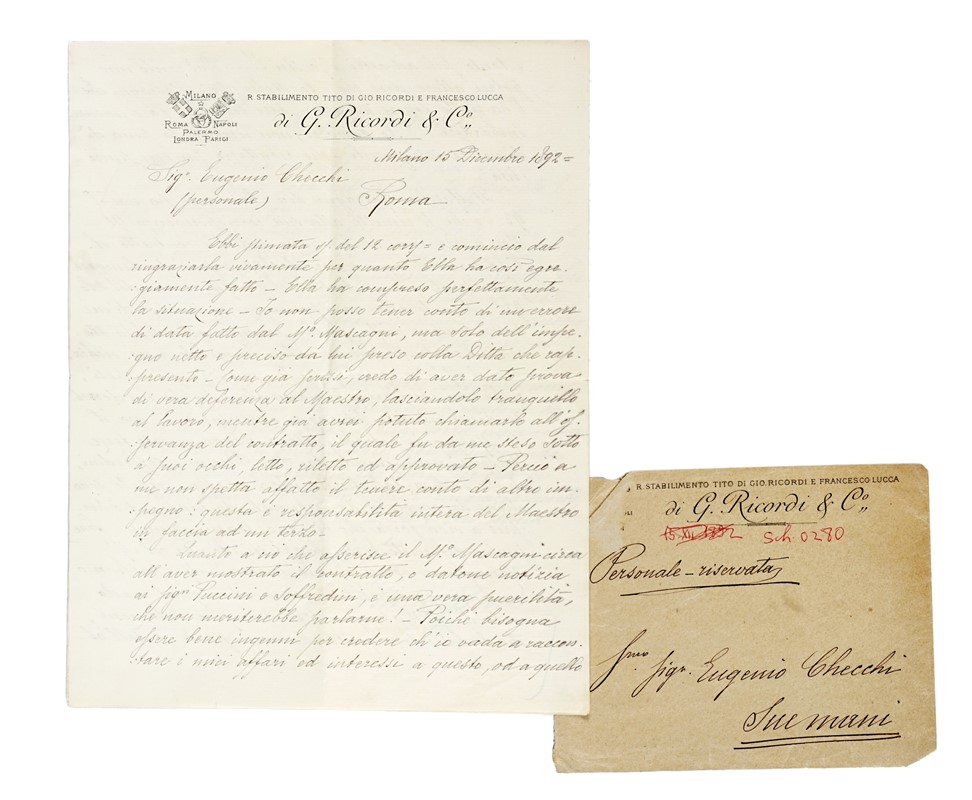 MILANO
ROMA NAPOLI
PALERMO
LONDRA PARIGI
R. STABILIMENTO TITO DI GIO. RICORDI E FRANCESCO LUCCA
di G. Ricordi & Co.,,
Milano 15 Dicembre 1892=
Sigr. Eugenio Checchi
(personale) Roma
Ebbi stimata sf. del 12 corr= e comincio dal
ringraziarla vivamente per quanto Ella ha così egre-
:giamente fatto - Ella ha compreso perfettamente
la situazione - Io non posso tener conto di un errore
di data fatto dal Mo. Mascagni, ma solo dell'impe-
:gno netto e preciso da lui preso colla Ditta che rap-
:presento - Come già scrissi, credo di aver dato prova
di vera deferenza al Maestro, lasciandolo tranquillo
al lavoro, mentre già avrei potuto chiamarlo all'os-
:servanza del contratto, il quale fu da me steso sotto
á suoi occhi, letto, riletto ed approvato - Perciò a
me non spetta affatto il tenere conto di altro im-
:pegno: questa è responsabilità intera del Maestro
in faccia ad un terzo -
Quanto a ciò che asserisce il Mo. Mascagni circa
all'aver mostrato il contratto, o datone notizia
ai sigri Puccini e Soffredini, è una vera puerilità,
che non meriterebbe parlarne! - Poiché bisogna
essere bene ingenui per credere ch'io vada a raccon-
:tare i miei affari ed interessi a questo, od a quello
R. STABILIMENTO TITO DI GIO. RICORDI E FRANCESCO LUCCA
di G. Ricordi & Co.,,
15-XII-1892 Sch. 0280
Personale - riservata
Sigr. Eugenio Checchi
Sue mani